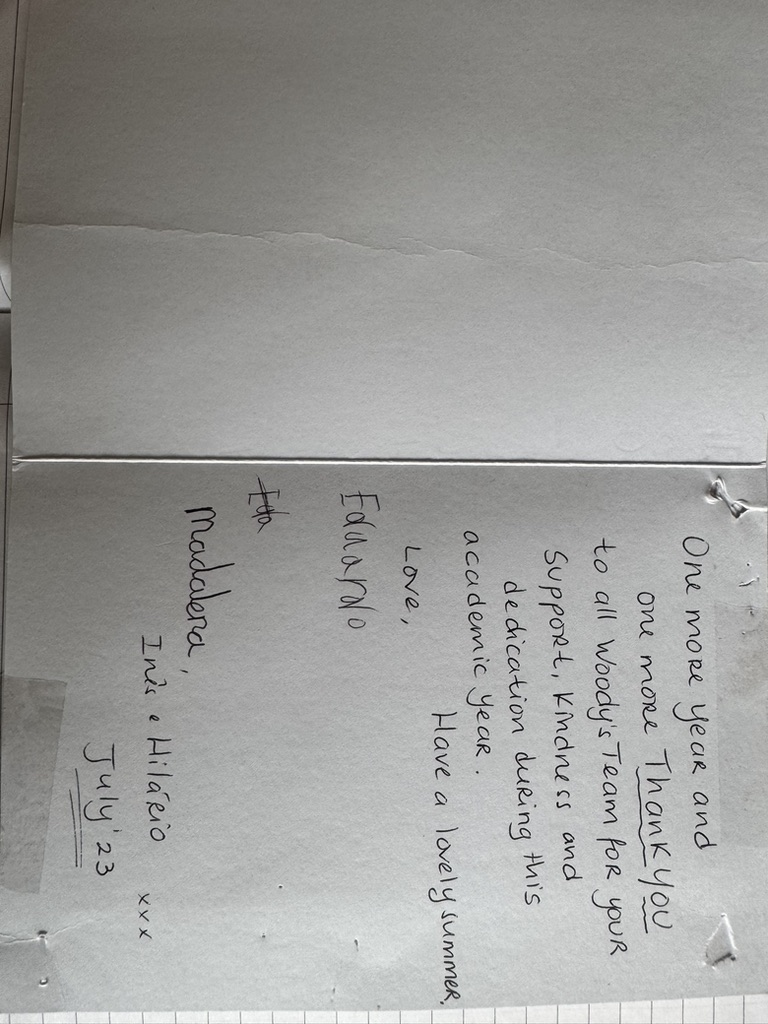 One more year and
one more Thank you
to all Woody's Team for your
support, kindness and
dedication during this
academic year.
Have a lovely summer.
Love,
Eduardo
Madalena,
Inês e Hilário xxx
July '23